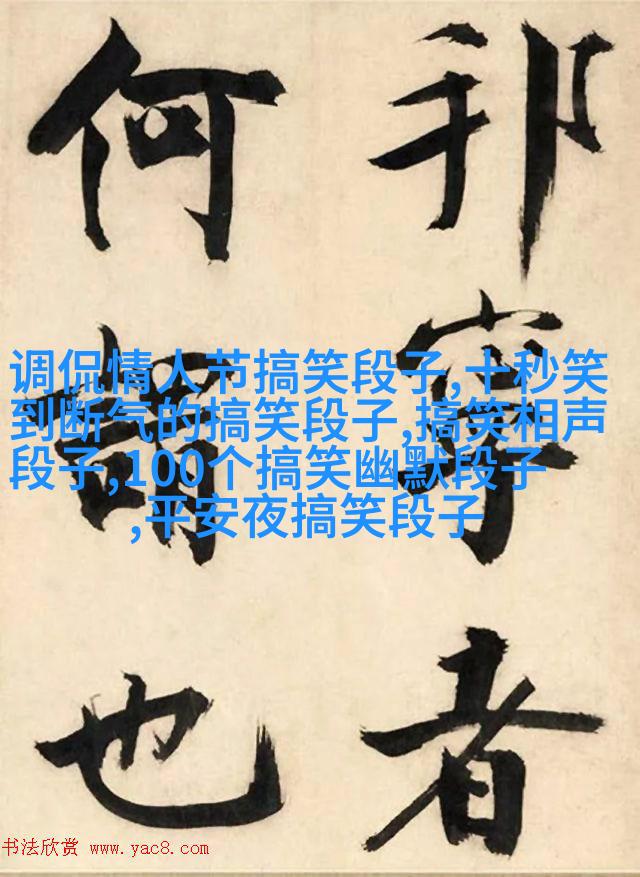 邦寧者
何謂也
调侃情人节搞笑段子,十秒笑
到断气的搞笑段子,搞笑相声
段子,100个搞笑幽默段子
,平安夜搞笑段子
书法欣赏 www.yac8.com